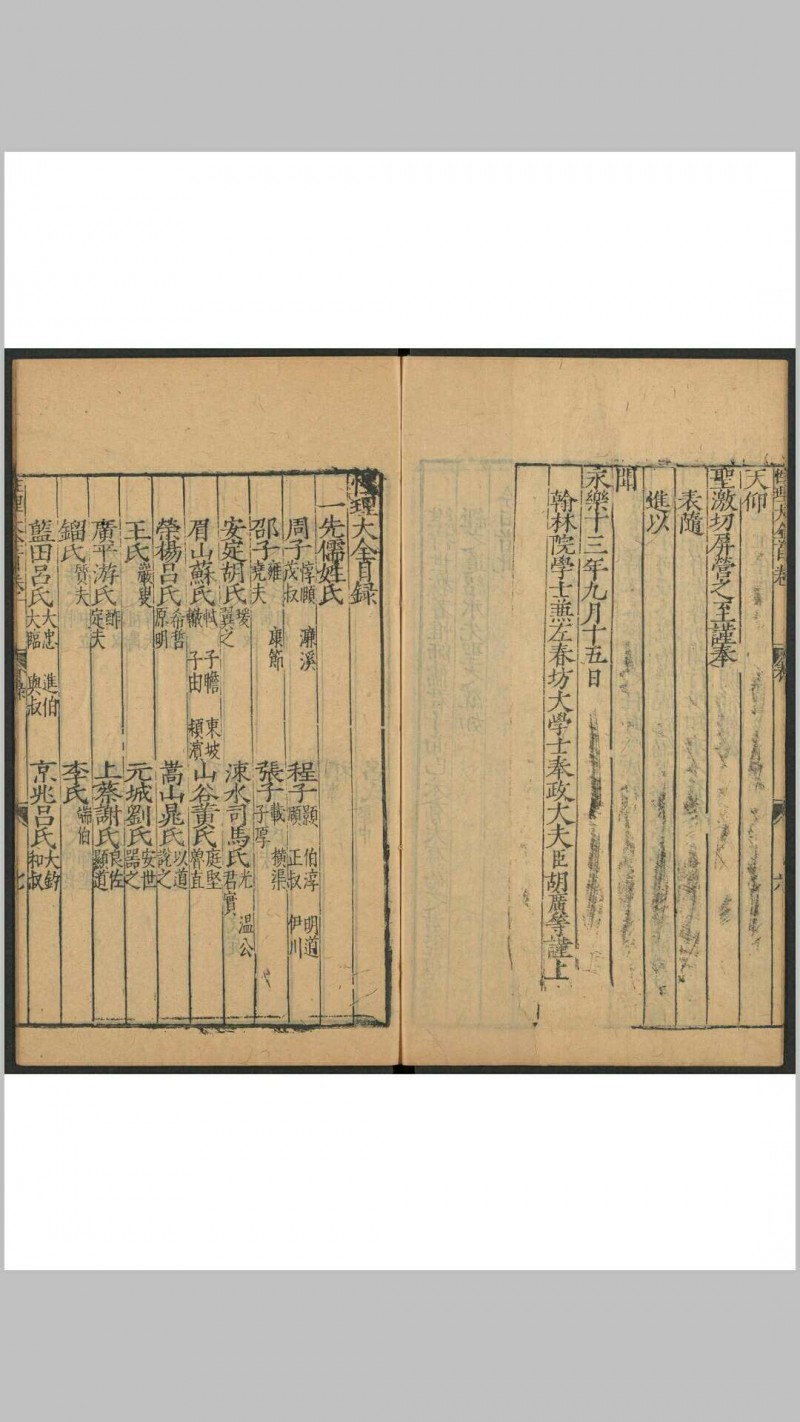 天仰
聖激切屏營之至謹奉
表隨
進以
聞
永樂十三年九月十五日
翰林院學士兼左春坊大學士奉政大夫臣胡廣等謹上
性理大全目錄
一先儒姓氏
周子 惇頤 茂叔 濂溪 程子 顥 伯淳 明道 頤 正叔 伊川
邵子 雍 堯夫 康節 張子 載 子厚 橫渠
安定胡氏 瑗 翼之 涑水司馬氏 光 君實 溫公
眉山蘇氏 軾 子瞻 東坡 轍 子由 頴濱 山谷黃氏 庭堅 魯直
滎楊呂氏 希哲 原明 嵩山晁氏 以道 說之
王氏 巖叟 元城劉氏 安世 器之
廣平游氏 酢 定夫 上蔡謝氏 良佐 顯道
鎦氏 質夫 李氏 端伯
藍田呂氏 大忠 進伯 大臨 與叔 京兆呂氏 大鈞 和叔
七